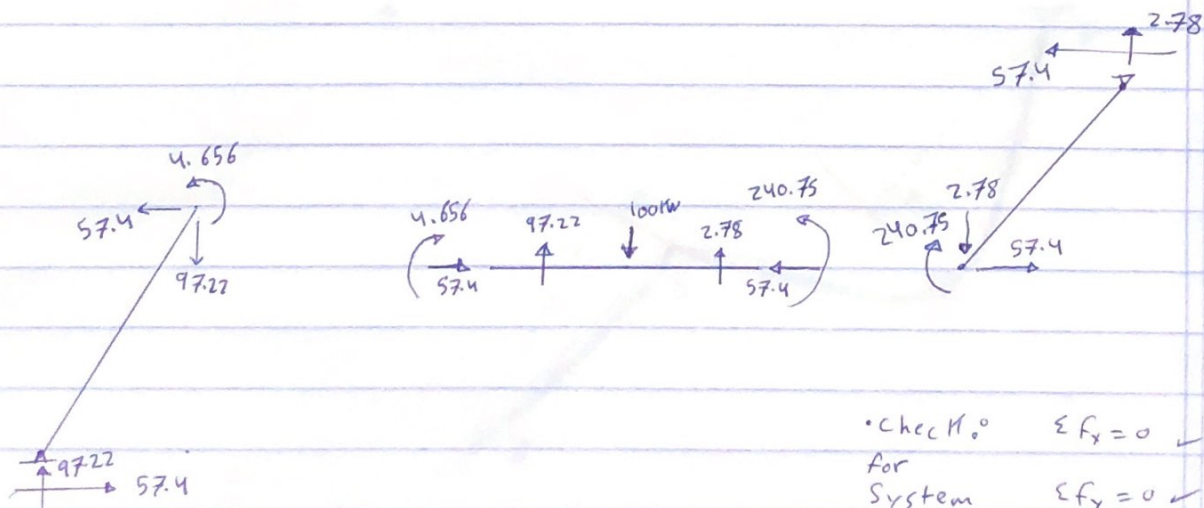 2.78
57.4
4.656
57.4
97.22
4.656
97.22
100KN
2.78
240.75
57.4
57.4
240.75
2.78
57.4
97.22
57.4
•Check: Σfx = 0 ✓
for
System Σfy = 0 ✓